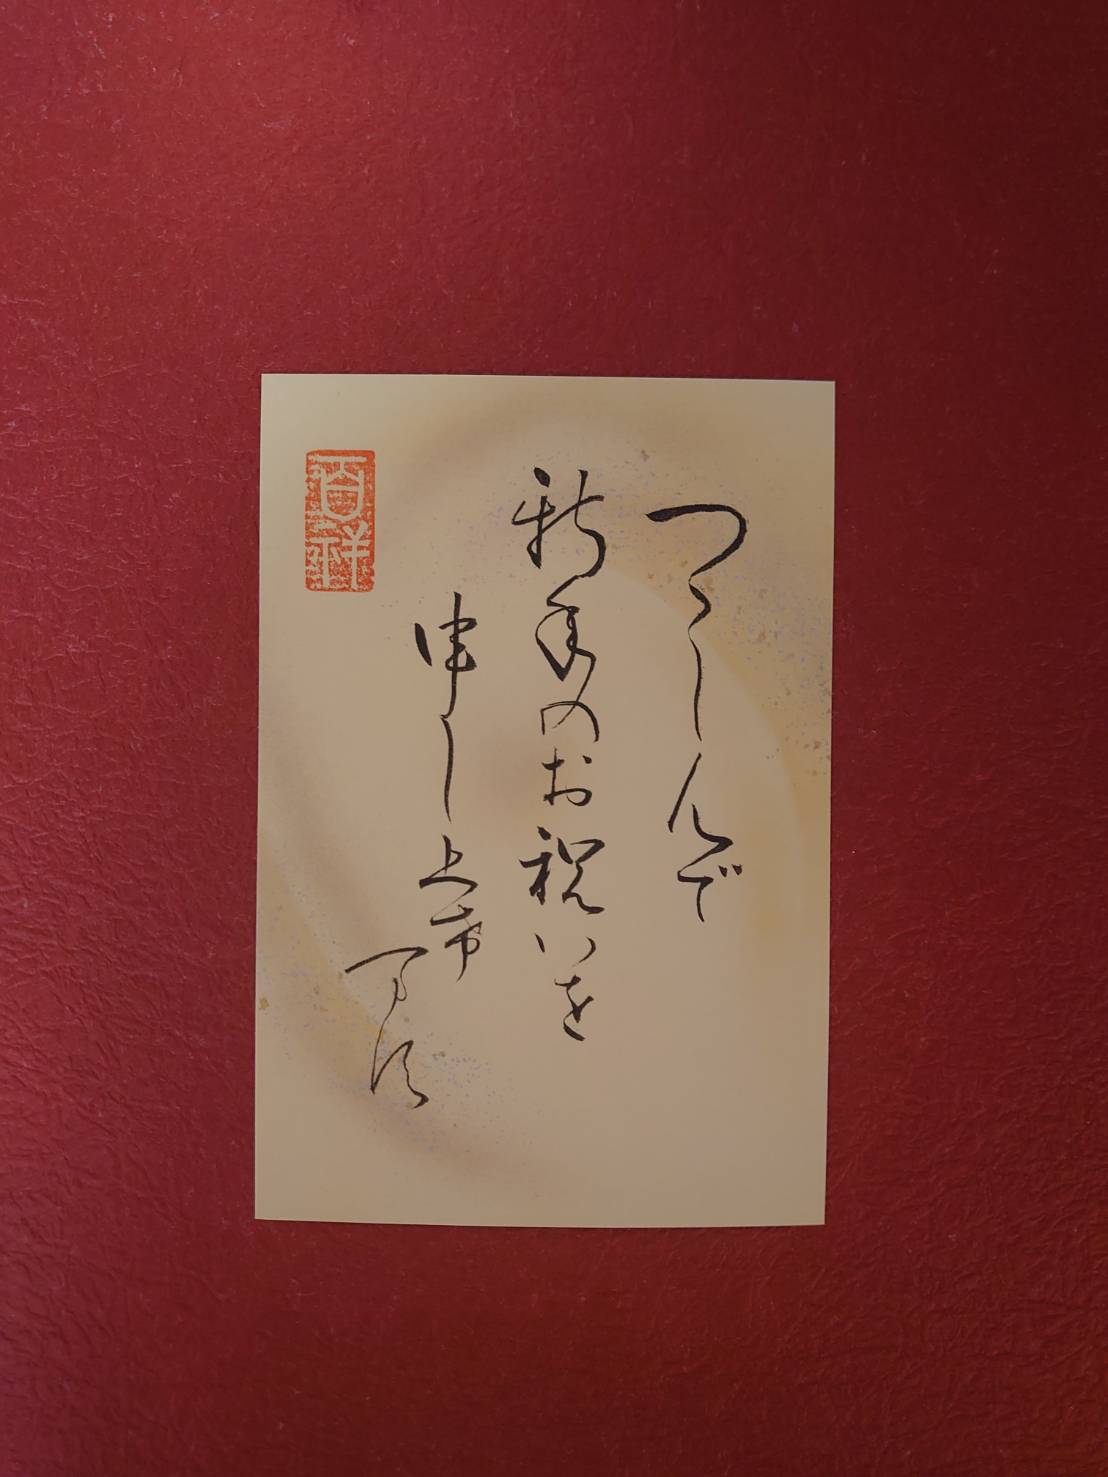 つゝしんで
新年のお祝いを
申し上希
万須
百祥